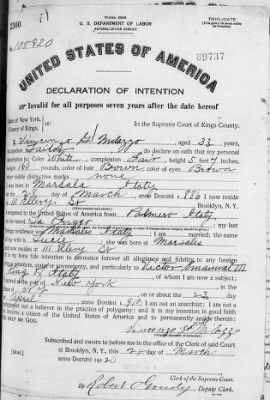 FORM 2203
U. S. DEPARTMENT OF LABOR
NATURALIZATION SERVICE
TRIPLICATE
No. 105820
69737
UNITED STATES OF AMERICA
DECLARATION OF INTENTION
Invalid for all purposes seven years after the date hereof
State of New York,
County of Kings,
ss:
In the Supreme Court of Kings County.
I, Vincenzo aged 33 years,
occupation do declare on oath that my personal
description is: Color White, complexion Fair, height 5 feet 7 inches,
weight pounds, color of hair Brown, color of eyes Brown
other visible distinctive marks none
I was born in Marsala Italy
on the day of March, anno Domini 1886; I now reside
at Ellery St Brooklyn, N. Y.
I emigrated to the United States of America from Palermo Italy
on the vessel; my last
foreign residence was Marsala Italy; I am married; the name
of my wife is; she was born at Marsala
and now resides at Ellery St
It is my bona fide intention to renounce forever all allegiance and fidelity to any foreign
prince, potentate, state, or sovereignty, and particularly to Victor Emanuel III
King of Italy, of whom I am now a subject;
I arrived at the port of New York, in the
State of N Y, on or about the 23 day
of April, anno Domini; I am not an anarchist; I am not a
polygamist nor a believer in the practice of polygamy; and it is my intention in good faith
to become a citizen of the United States of America and to permanently reside therein:
SO HELP ME GOD.
Vincenzo
Subscribed and sworn to before me in the office of the Clerk of said Court
at Brooklyn, N. Y., this day of March
anno Domini 1920
[SEAL]
Clerk of the Supreme Court.
By Robert, Deputy Clerk.